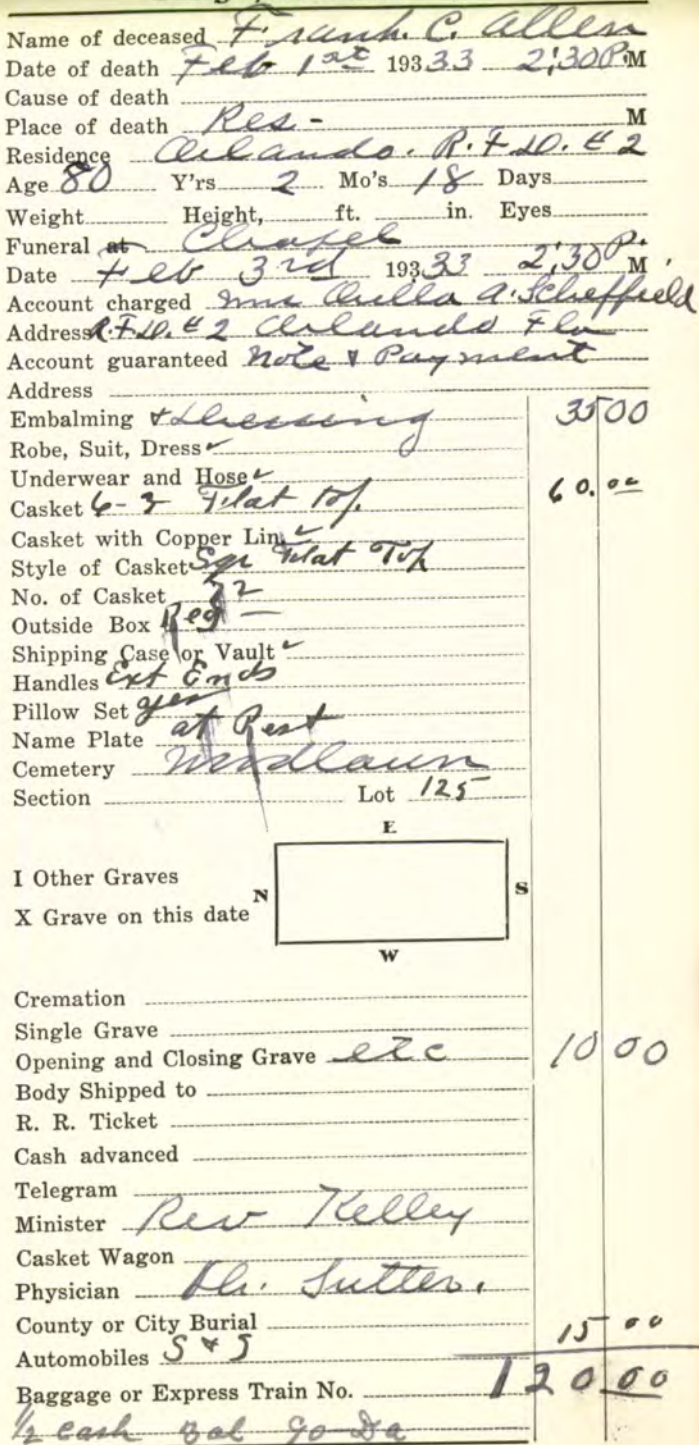 Name of deceased Frank. C. Allen
Date of death Feb 1st 19333 2:30 P.M
Cause of death
Place of death Res- M
Residence Orlando. R.F.D. # 2
Age 80 Y'rs 2 Mo's 18 Days
Weight Height, ft. in. Eyes
Funeral at Chapel
Date Feb 3rd 19333 2:30 P. M
Account charged Mrs A. Scheffield
Address R.F.D. # 2 Orlando Fla
Account guaranteed Note & Payment
Address
Embalming & Dressing 35 00
Robe, Suit, Dress
Underwear and Hose
Casket 6-3 Flat top. 60.00
Casket with Copper Lin.
Style of Casket Sqr Flat Top
No. of Casket
Outside Box Reg
Shipping Case or Vault
Handles Ext Ends
Pillow Set yes
Name Plate at Rest
Cemetery Woodlawn
Section Lot 125
E
I Other Graves
N S
X Grave on this date
W
Cremation
Single Grave
Opening and Closing Grave etc 10 00
Body Shipped to
R. R. Ticket
Cash advanced
Telegram
Minister Rev Kelley
Casket Wagon
Physician Dr. Sutter.
County or City Burial
Automobiles S & S 15 00
Baggage or Express Train No. 120.00
1/2 cash Bal 90 Da